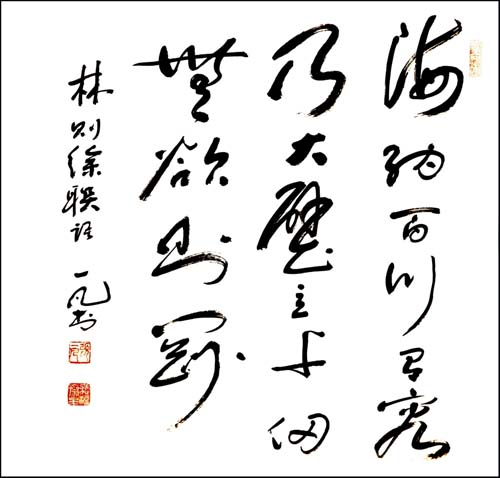 海纳百川有容
乃大壁立千仞
無欲则剛
林则徐联语 一凡书